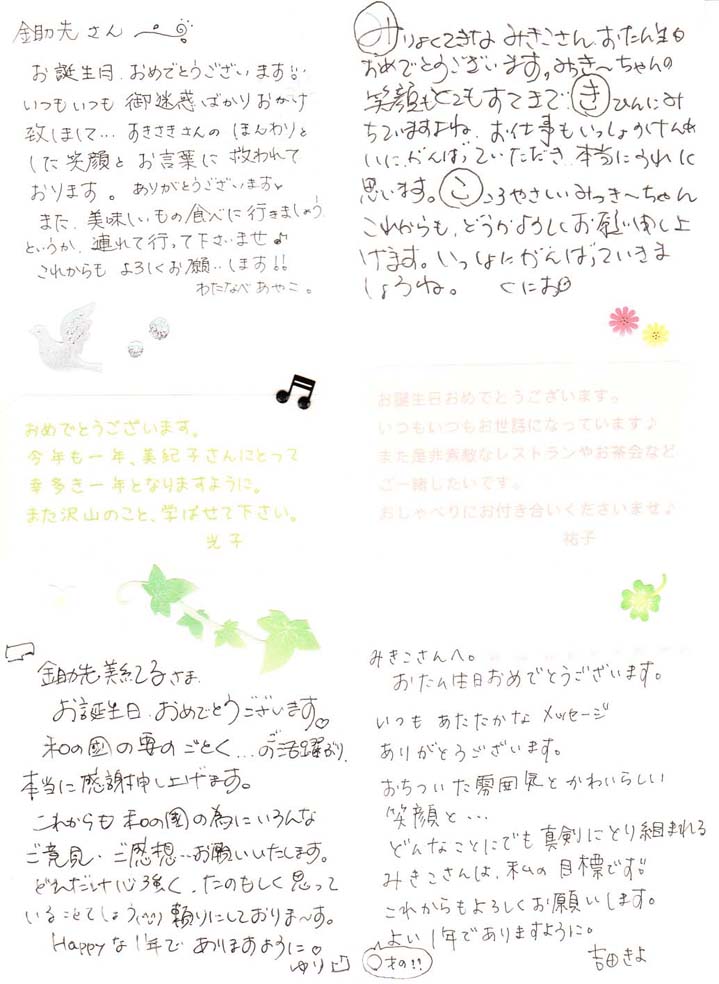 金助先さん
お誕生日、おめでとうございます!!
いつもいつも御迷惑ばかりおかけ
致しまして…あきさきさんのほんわりと
した笑顔とお言葉に救われて
おります。ありがとうございます♥
また、美味しいもの食べに行きましょう
というか、連れて行って下さいませ♪
これからもよろしくお願いします!!
わたなべあやこ。
みりょくてきなみきこさん、おたん生日
おめでとうございます。みっき〜ちゃんの
笑顔もとてもすてきで、きひんにみ
ちていますよね。お仕事もいっしょうけんめ
いにがんばっていただき、本当にうれしく
思います。こころやさしいみっき〜ちゃん
これからも、どうかよろしくお願い申し上
げます。いっしょにがんばっていきま
しょうね。くにお
おめでとうございます。
今年も一年、美紀子さんにとって
幸多き一年となりますように。
また沢山のこと、学ばせて下さい。
光子
お誕生日おめでとうございます。
いつもいつもお世話になっています♪
また是非素敵なレストランやお茶会など
ご一緒したいです。
おしゃべりにお付き合いくださいませ♪
祐子
金助先美紀子さま
お誕生日、おめでとうございます♡
和の圀の要のごとく…のご活躍ぶり、
本当に感謝申し上げます。
これからも和の圀の為にいろんな
ご意見・ご感想…お願いいたします。
どれだけ心強く、たのもしく思って
いることでしょう 頼りにしておりま〜す。
Happyな1年でありますように♡
ゆり
みきこさんへ。
おたん生日おめでとうございます。
いつもあたたかなメッセージ
ありがとうございます。
おちついた雰囲気とかわいらしい
笑顔と…
どんなことにでも真剣にとり組まれる
みきこさんは、私の目標です!!
これからもよろしくお願いします。
よい1年でありますように。
吉田きよ